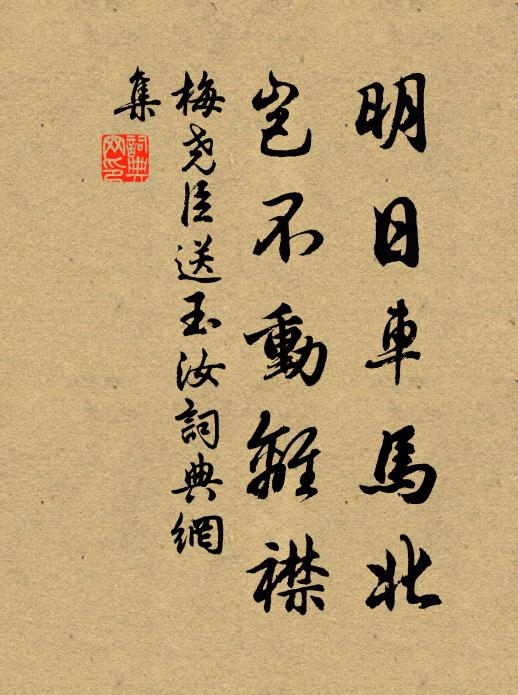 明日車馬北
豈不動離襟
梅堯臣送玉汝詞典網
集
詞典
网印